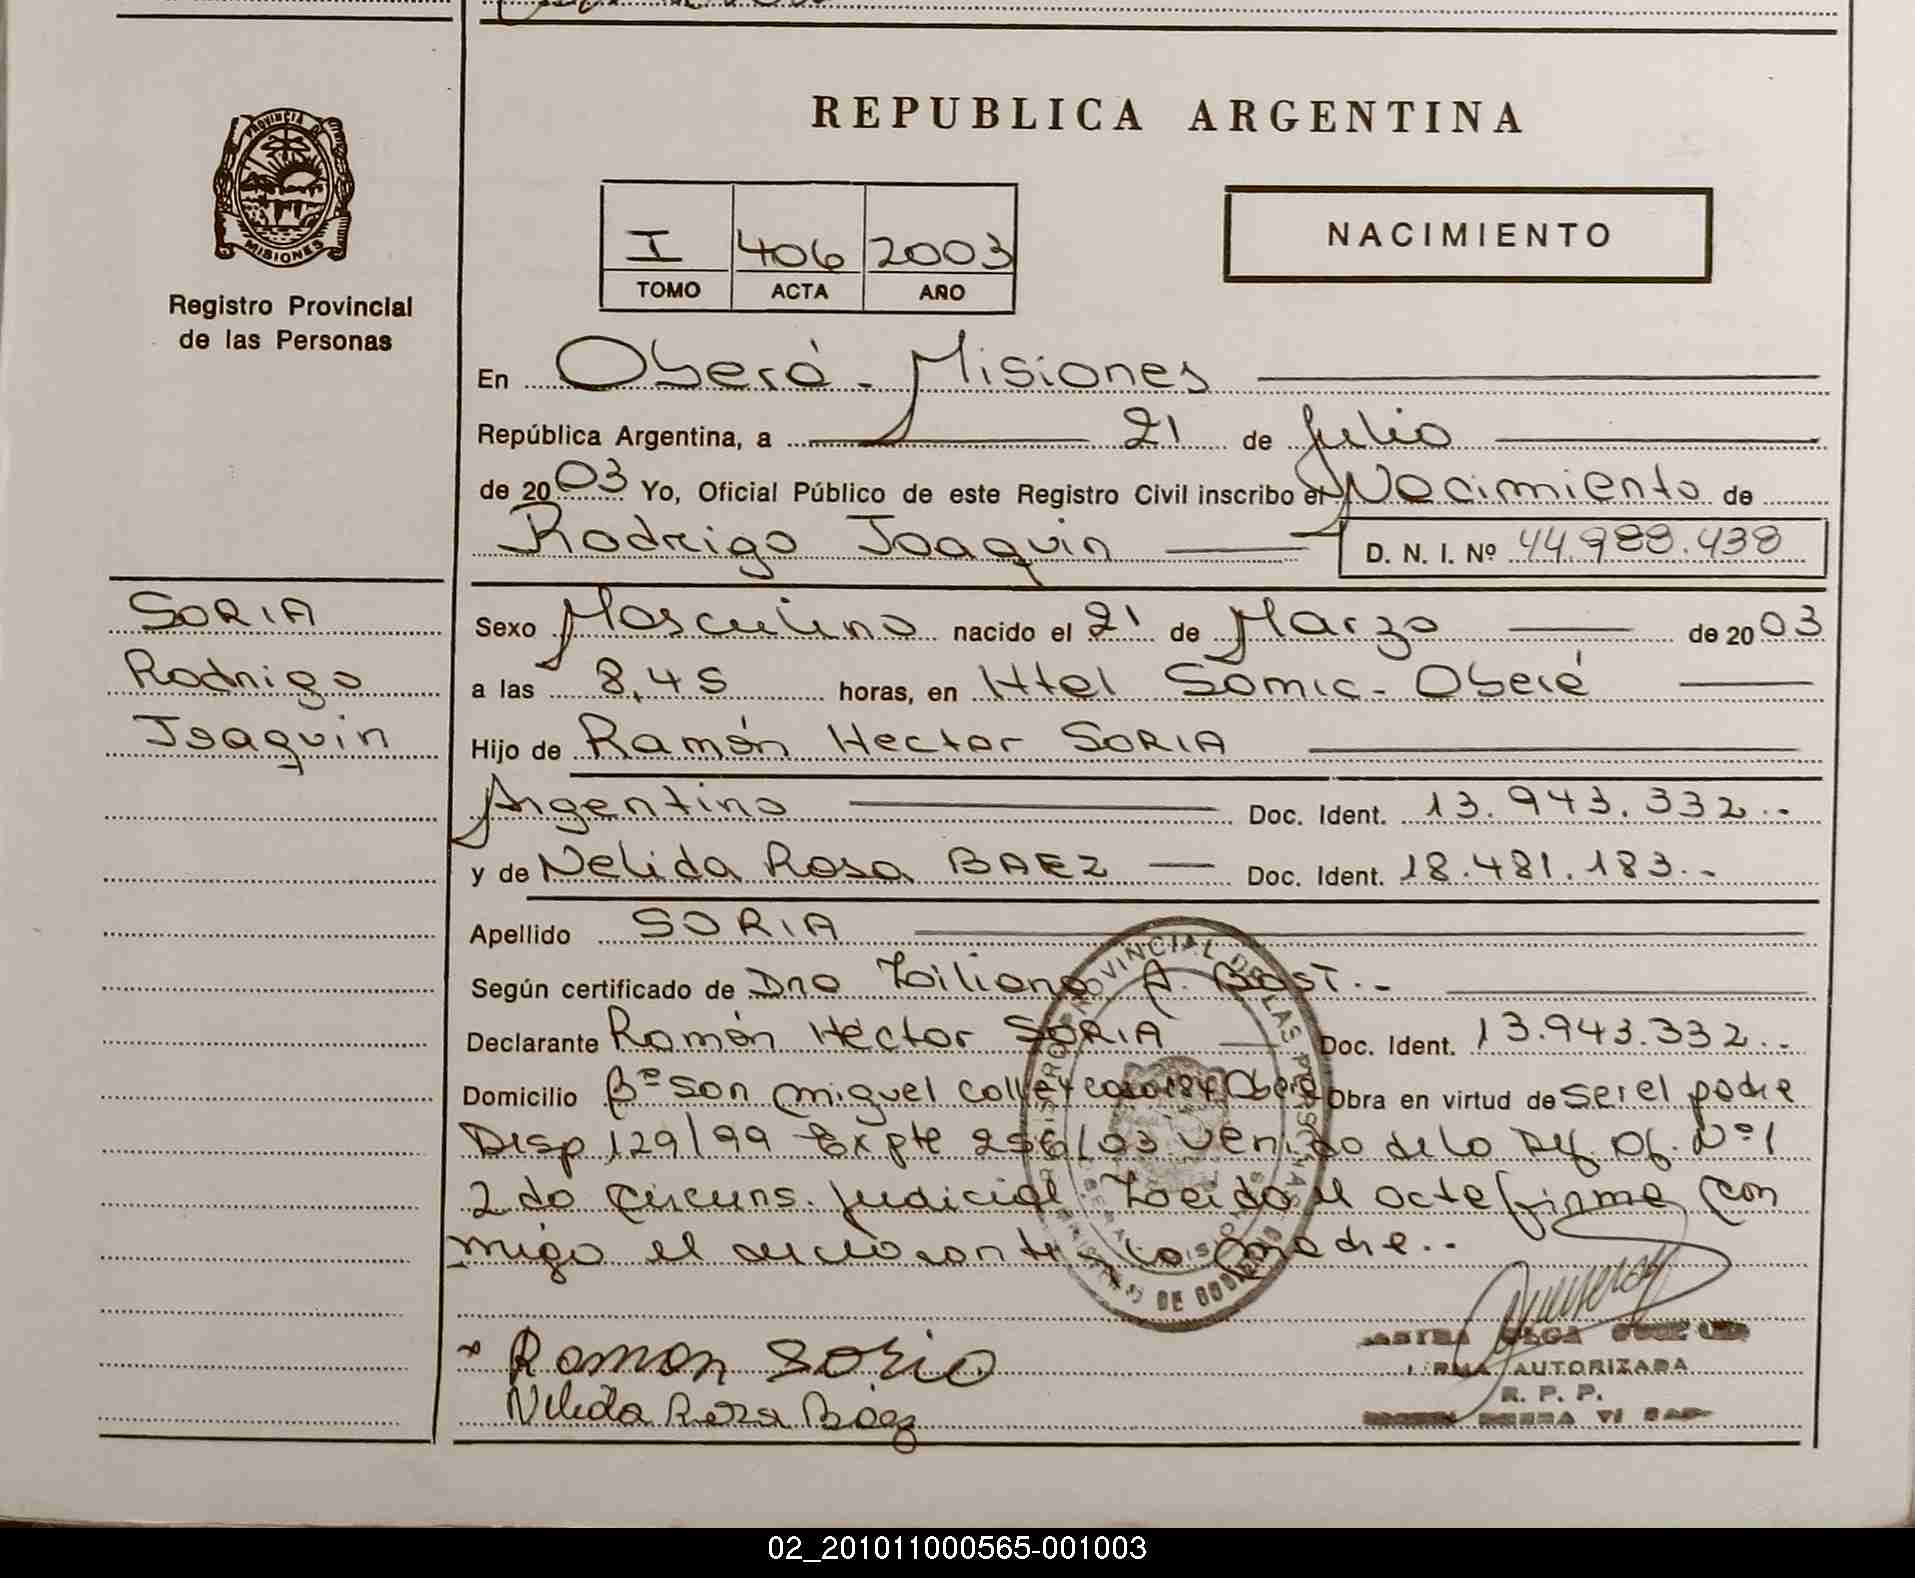 REPUBLICA ARGENTINA
PROVINCIA DE MISIONES
Registro Provincial
de las Personas
I 406 2003
TOMO ACTA AÑO
NACIMIENTO
En Oberá - Misiones
República Argentina, a 21 de Julio
de 2003 Yo, Oficial Público de este Registro Civil inscribo el Nacimiento de
Rodrigo Joaquin D. N. I. Nº 44.988.438
SORIA
Rodrigo
Joaquin
Sexo Masculino nacido el 21 de Marzo de 2003
a las 8,45 horas, en Htal Samic - Oberá
Hijo de Ramón Hector SORIA
Argentino Doc. Ident. 13.943.332.-
y de Nelida Rosa BAEZ Doc. Ident. 18.481.183.-
Apellido SORIA
Según certificado de Dra Liliana A. Bast.-
Declarante Ramón Hector SORIA Doc. Ident. 13.943.332.-
Domicilio Bº San Miguel calle 4 casa 184 Oberá Obra en virtud de ser el padre
Disp 129/99 Expte 256/03 venido de la Def Of. Nº 1
2 da Circuns. Judicial Leida el acta firma con
migo el declarante y la madre.-
REGISTRO PROVINCIAL DE LAS PERSONAS
MINISTERIO DE GOBIERNO
Ramon Soria
Nelida Rosa Báez
OLGA
FIRMA AUTORIZADA
R. P. P.
02_201011000565-001003